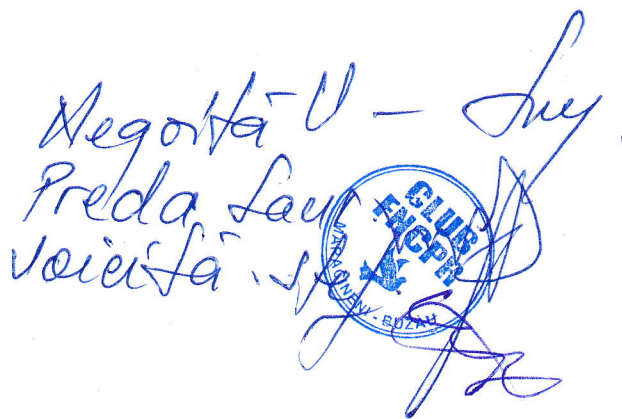 Negoiță V -
Preda Laur
Voiciță
CLUB
FNCPR
MĂRĂCINENI - BUZĂU